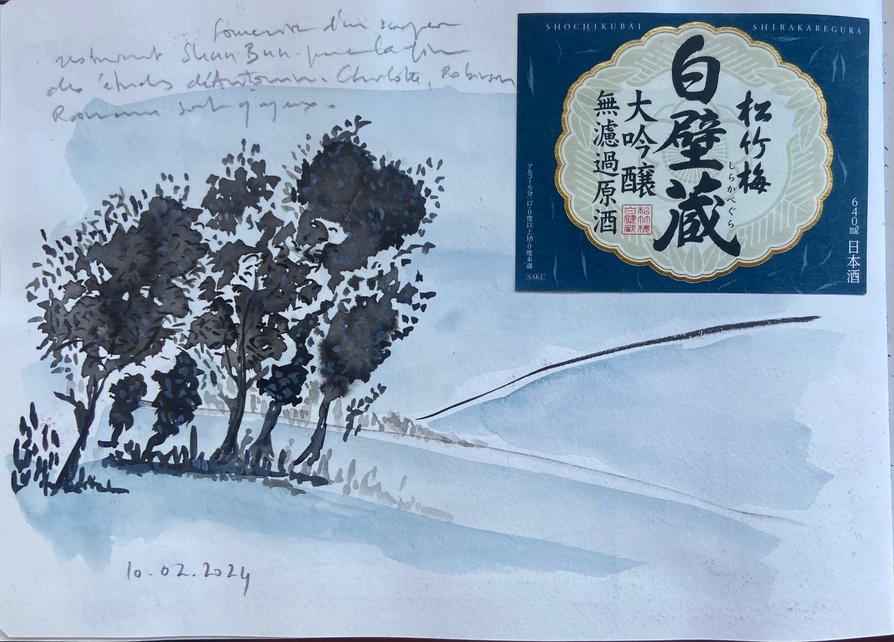 Souvenir d'un super
restaurant pour la fin
des études d'Antonin. Charlotte, Robinson
Romane sont joyeux.
SHOCHIKUBAI
SHIRAKABEGURA
松竹梅
白壁蔵
しらかべぐら
大吟醸
無濾過原酒
松竹梅
白壁蔵
アルコール分:17.0度以上18.0度未満
SAKE
640㎖ 日本酒
10.02.2024